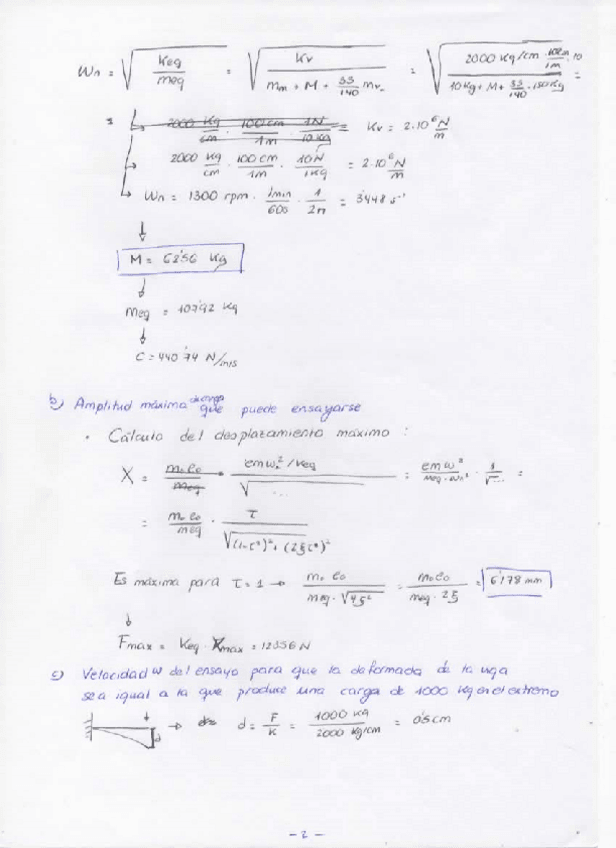 Wn = √(Keq / meq) = √(Kv / (mm + M + 33/140 mv)) = √((2000 Kg/cm · 100cm/1m · 10) / (10Kg + M + 33/140 · 150Kg)) =
= 2000 Kg/cm · 100cm/1m · 1N/10Kg = Kv = 2·10⁶ N/m
2000 Kg/cm · 100cm/1m · 10N/1Kg = 2·10⁶ N/m
Wn = 1300 rpm · 1min/60s · 1/2π = 3'448 s⁻¹
↓
M = 62'56 Kg
↓
meq = 107'92 Kg
↓
C = 440'74 N/m/s
b) Amplitud máxima de carga que puede ensayarse
· Cálculo del desplazamiento máximo :
X = mo eo / meq · emω²/Keq / √ ... = emω² / meq·ωn² · 1/√... =
= mo eo / meq · τ / √((1-τ²)² + (2ξτ)²)
Es máxima para τ = 1 → mo eo / meq·√4ξ² = mo eo / meq·2ξ = 6'178 mm
↓
Fmax = Keq · Xmax = 12356 N
c) Velocidad ω del ensayo para que la deformada de la viga
sea igual a la que produce una carga de 1000 Kg en el extremo
→ d = F/K = 1000 Kg / 2000 Kg/cm = 0'5 cm
- 2 -